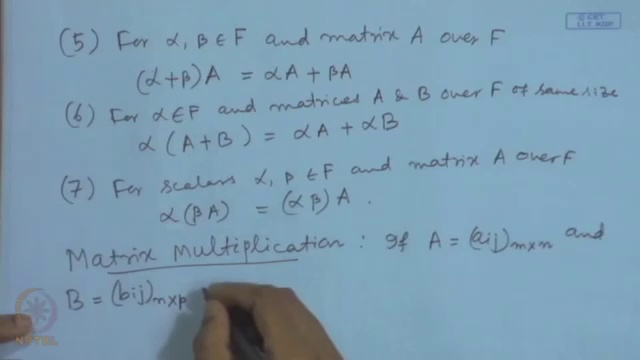 © CET
I.I.T. KGP
(5) For α, β ∈ F and matrix A over F
(α+β)A = αA + βA
(6) For α∈F and matrices A & B over F of same size
α (A+B) = αA + αB
(7) For scalars α, β ∈ F and matrix A over F
α(βA) = (αβ)A.
Matrix Multiplication : If A = (aij)m×n and
B = (bij)n×p
NPTEL